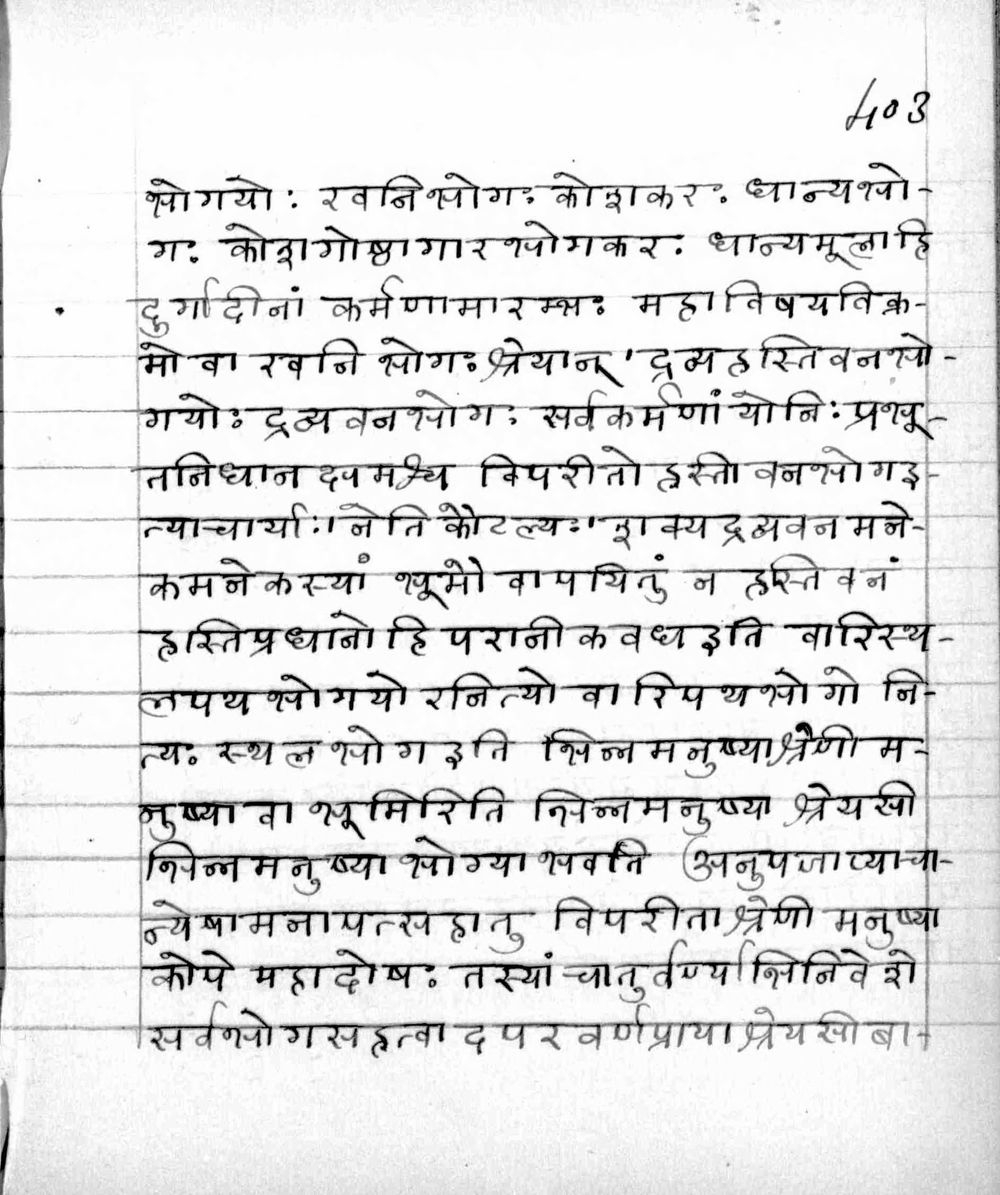 403
भोगयोः खनिभोगः कोशकरः धान्यभो-
गः कोशगोष्ठागारभोगकरः धान्यमूलाहि
दुर्गादीनां कर्मणामारम्भः महाविषयविक्र-
मो वा खनि भोगः श्रेयान् ' द्रव्यहस्तिवनभो-
गयोः द्रव्यवनभोगः सर्वकर्मणां योनिः प्रभू-
तनिधानक्षमश्च विपरीतो हस्ती वनभोग इ-
त्याचार्याः। नेति कौटल्यः' शक्यद्रव्यवनमने-
कमनेकस्यां भूमौ वापयितुं न हस्तिवनं
हस्तिप्रधानो हि परानीकवध इति वारिस्थ-
लपथभोगयोरनित्यो वारिपथभोगो नि-
त्यः स्थलभोग इति भिन्नमनुष्याश्रेणी म-
नुष्या वा भूमिरिति भिन्नमनुष्या श्रेयसी
भिन्नमनुष्या भोग्या भवति अनुपजाप्याचा-
न्येषामनापत्सहातु विपरीताश्रेणी मनुष्या
कोपे महादोषः तस्यां चातुर्वर्ण्याभिनिवेशे
सर्वभोगसहत्वादपरवर्णप्राया श्रेयसी बा-